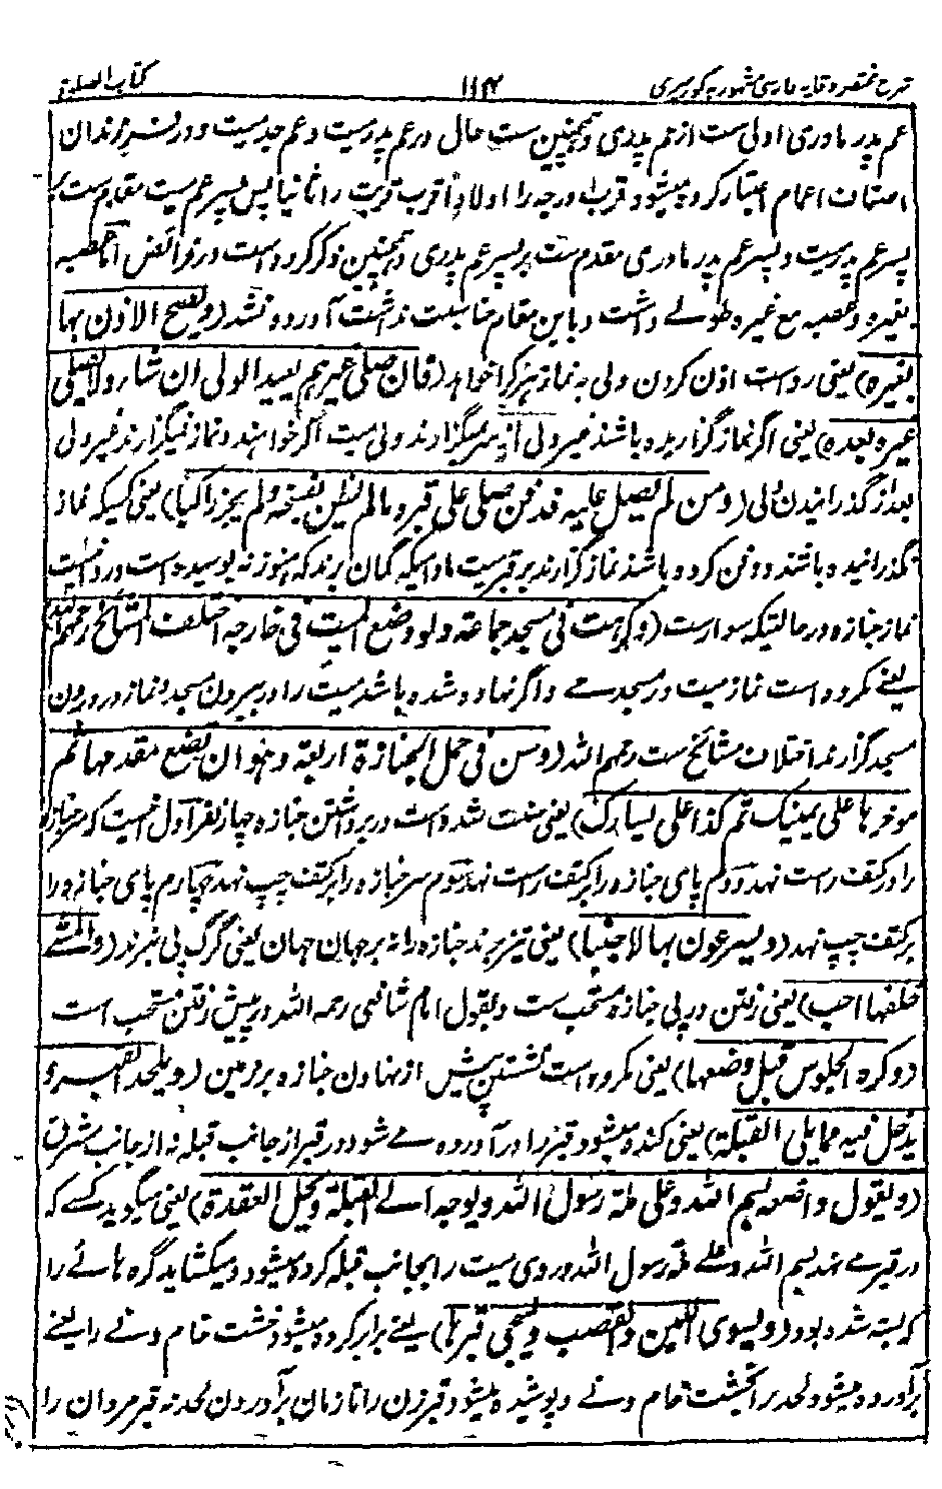 شرح مختصر وقایه فارسی مشهور به کورسیری ۱۱۴ کتاب الصلوة
عم پدر مادری اولی ست از عم پدری و همچنین ست حال در عم پدر میت و عم جد میت و در پسر فرزندان
اصناف اعمام اعتبار کرده میشود قرب درجه را اولا و اقرب قرابت را ثانیا پس پسر عم میت مقدم ست بر
پسر عم پدر میت و پسر عم پدر مادری مقدم ست بر پسر عم پدری و همچنین ذکر کرده است در فرائض اما عصبه
بغیره و عصبه مع غیره طولے داشت و باین مقام مناسبت نداشت آورده نشد (ویصح الاذن بها
لغیره) یعنی رواست اذن کردن ولی به نماز هر کرا خواهد (فان صلی غیرهم یعید الولی ان شاء ولا یصلی
غیره بعده) یعنی اگر نماز گزارده باشند غیر ولی از سر میگزارند ولی میت اگر خواهند و نماز نمیگزارند غیر ولی
بعد از گذرانیدن ولی (ومن لم یصل علیه فدفن صلی علی قبره ما لم یظن تفسخه ولم یجز راکبا) یعنی کسیکه نماز
نگذرانیده باشند و دفن کرده باشند نماز گزارند بر قبر میت مادامیکه گمان برند که هنوز نه پوسیده است و روا نیست
نماز جنازه در حالتیکه سوار ست (وکرهت فی مسجد جماعة ولو وضع المیت فی خارجه اختلف المشائخ رحمهم الله
یعنے مکروه است نماز میت در مسجدے و اگر نهاده شده باشد میت را در بیرون مسجد و نماز در درون
مسجد گزارند اختلاف مشائخ ست رحمهم الله (وسن فی حمل الجنازة اربعة وهو ان یضع مقدمها ثم
موخرها علی یمینک ثم کذا علی یسارک) یعنی سنت شده است در برداشتن جنازه چهار نفر اول آنست که سر جنازه
را در کتف راست نهد دوم پای جنازه را بر کتف راست نهد سوم سر جنازه را بر کتف چپ نهد چهارم پای جنازه را
بر کتف چپ نهد (ویسرعون بها لا خببا) یعنی تیز برند جنازه را نه بر جهان جهان یعنی گرگ پی نبرند (والمشے
خلفها احب) یعنی رفتن در پی جنازه مستحب ست و بقول امام شافعی رحمه الله در پیش رفتن مستحب است
(وکره الجلوس قبل وضعها) یعنی مکروه است نشستن پیش از نهادن جنازه بر زمین (ویلحد القبر و
یدخل فیه مما یلی القبلة) یعنی کنده میشود قبر را و در آورده مے شود در قبر از جانب قبله نه از جانب مشرق
(ویقول واضعه بسم الله وعلی ملة رسول الله ویوجه الے القبلة وتحل العقدة) یعنی میگوید کسے که
در قبرے نهد بسم الله وعلے ملة رسول الله و روی میت را بجانب قبله کرده میشود و میکشاید گره هائے را
که بسته شده بود (ویسوی اللبن والقصب ویسجی قبرها) یعنے برابر کرده میشود خشت خام و نے را یعنے
برآورده میشود لحد را بخشت خام و نے و پوشیده میشود قبر زن را تا زمان برآوردن لحد نه قبر مردان را